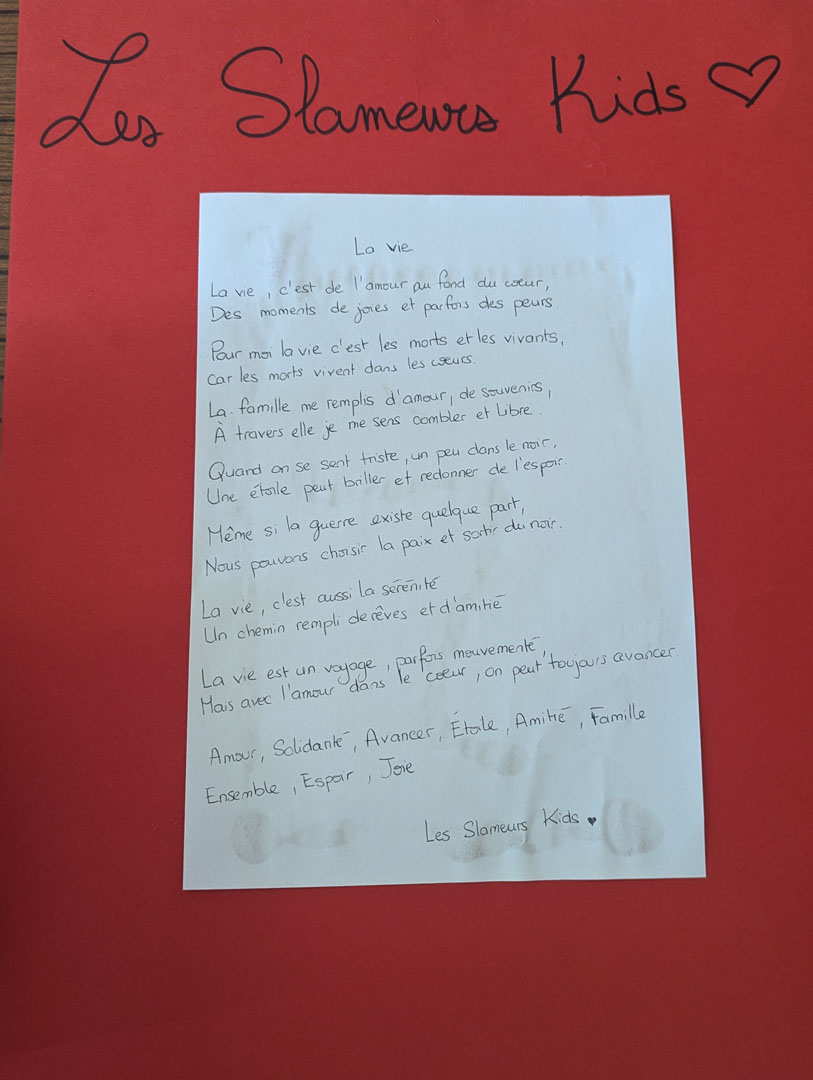 Les Slameurs Kids ♡
La vie
La vie, c'est de l'amour au fond du cœur,
Des moments de joies et parfois des peurs.
Pour moi la vie c'est les morts et les vivants,
Car les morts vivent dans les cœurs.
La famille me remplis d'amour, de souvenirs,
À travers elle je me sens combler et libre.
Quand on se sent triste, un peu dans le noir,
Une étoile peut briller et redonner de l'espoir.
Même si la guerre existe quelque part,
Nous pouvons choisir la paix et sortir du noir.
La vie, c'est aussi la sérénité
Un chemin rempli de rêves et d'amitié
La vie est un voyage, parfois mouvementé,
Mais avec l'amour dans le cœur, on peut toujours avancer.
Amour, Solidarité, Avancer, Étoile, Amitié, Famille
Ensemble, Espoir, Joie
Les Slameurs Kids ♥